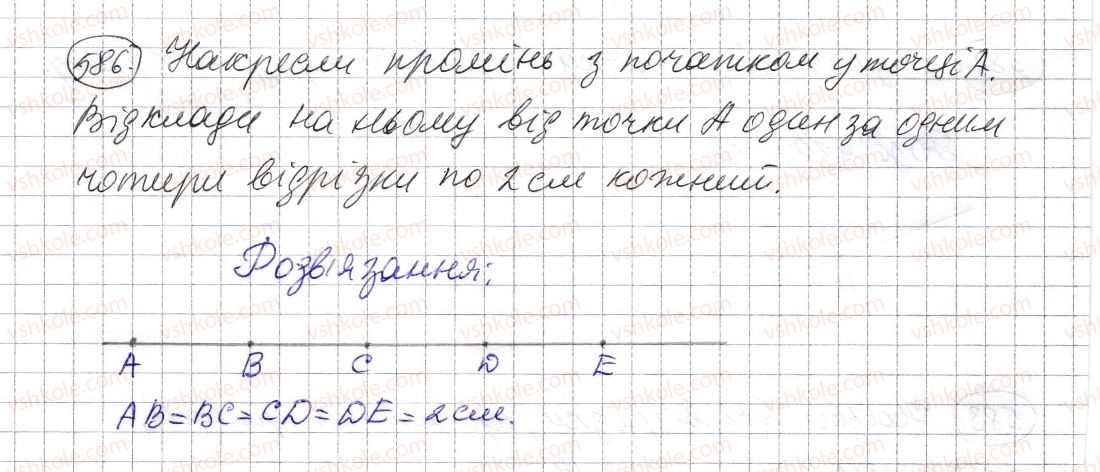 586. Накресли промінь з початком у точці А.
Відклади на ньому від точки А один за одним
чотири відрізки по 2 см кожний.
Розвіязання:
A B C D E
AB = BC = CD = DE = 2 см.